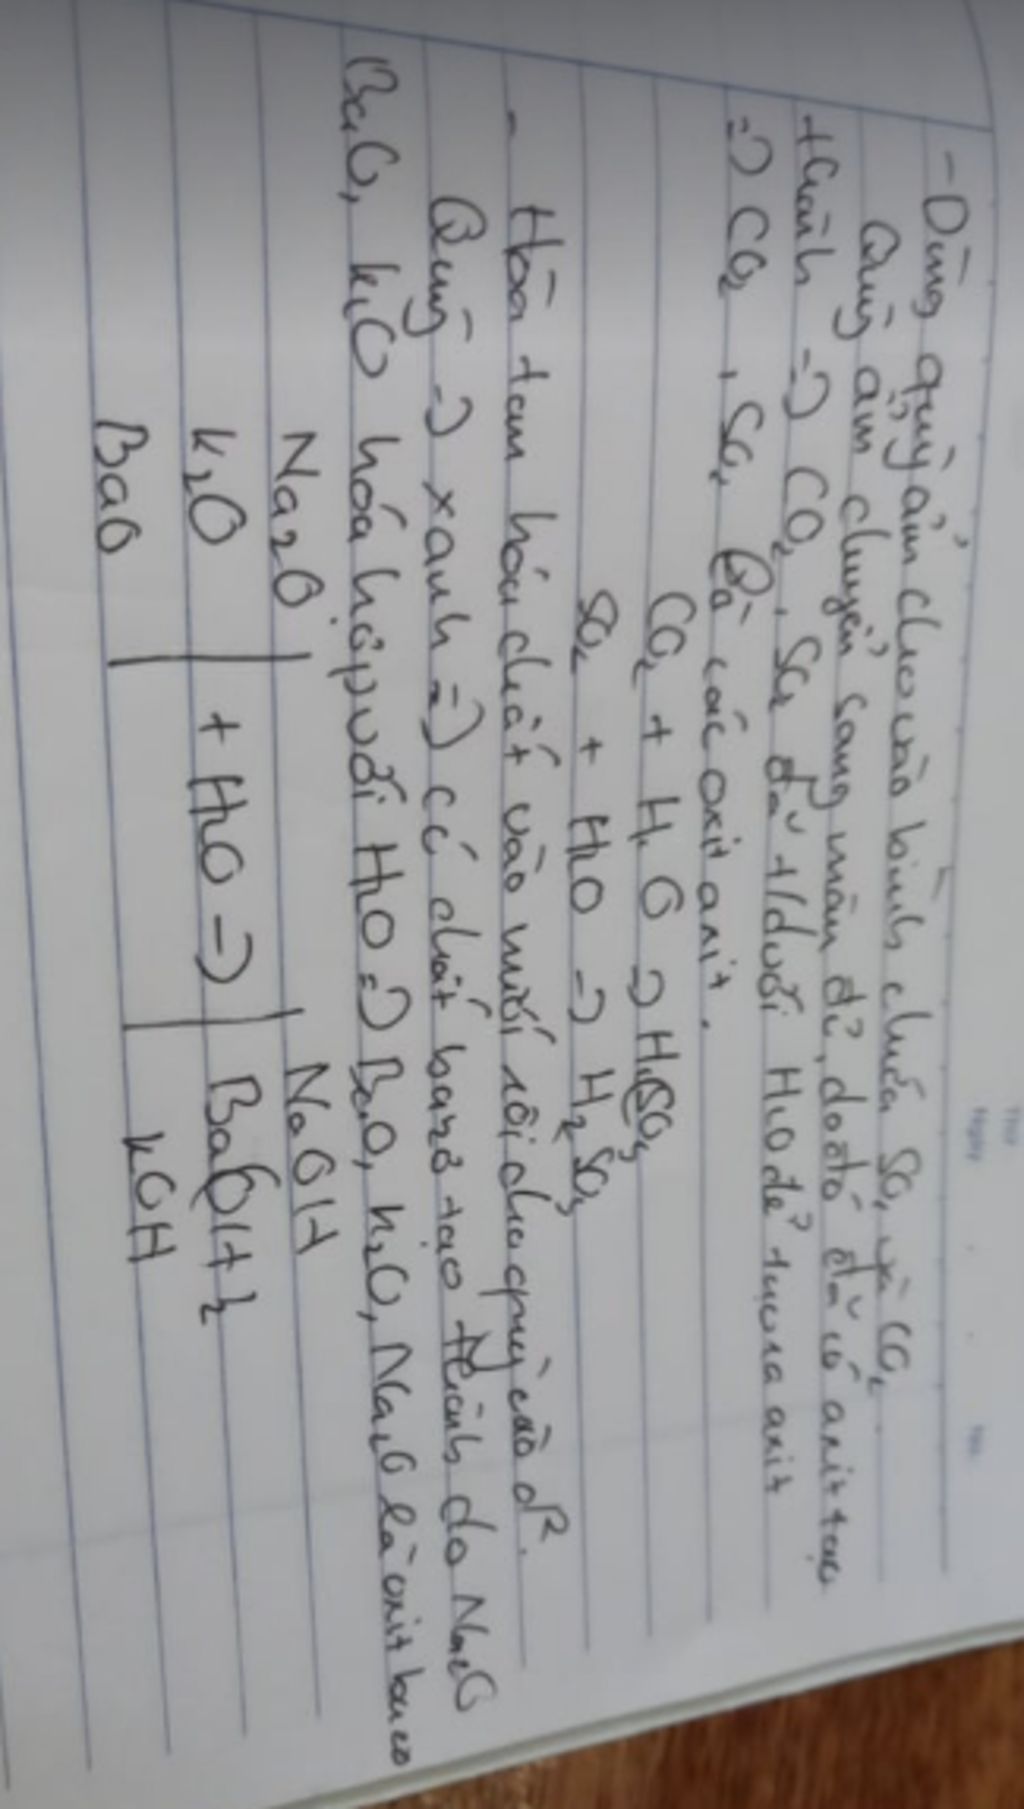 - Dùng quỳ ẩm cho vào bình chứa SO₂ và CO₂.
Quỳ ẩm chuyển sang màu đỏ, do đó đã có axit tạo
thành => CO₂, SO₂ đã t/d với H₂O để tạo ra axit
=> CO₂, SO₂ là các oxit axit.
CO₂ + H₂O → H₂CO₃
SO₂ + H₂O → H₂SO₃
- Hòa tan hóa chất vào nước rồi cho quỳ vào d².
Quỳ → xanh => có chất bazơ tạo thành do Na₂O
BaO, K₂O hóa hợp với H₂O => BaO, K₂O, Na₂O là oxit bazơ
Na₂O NaOH
K₂O + H₂O → Ba(OH)₂
BaO KOH